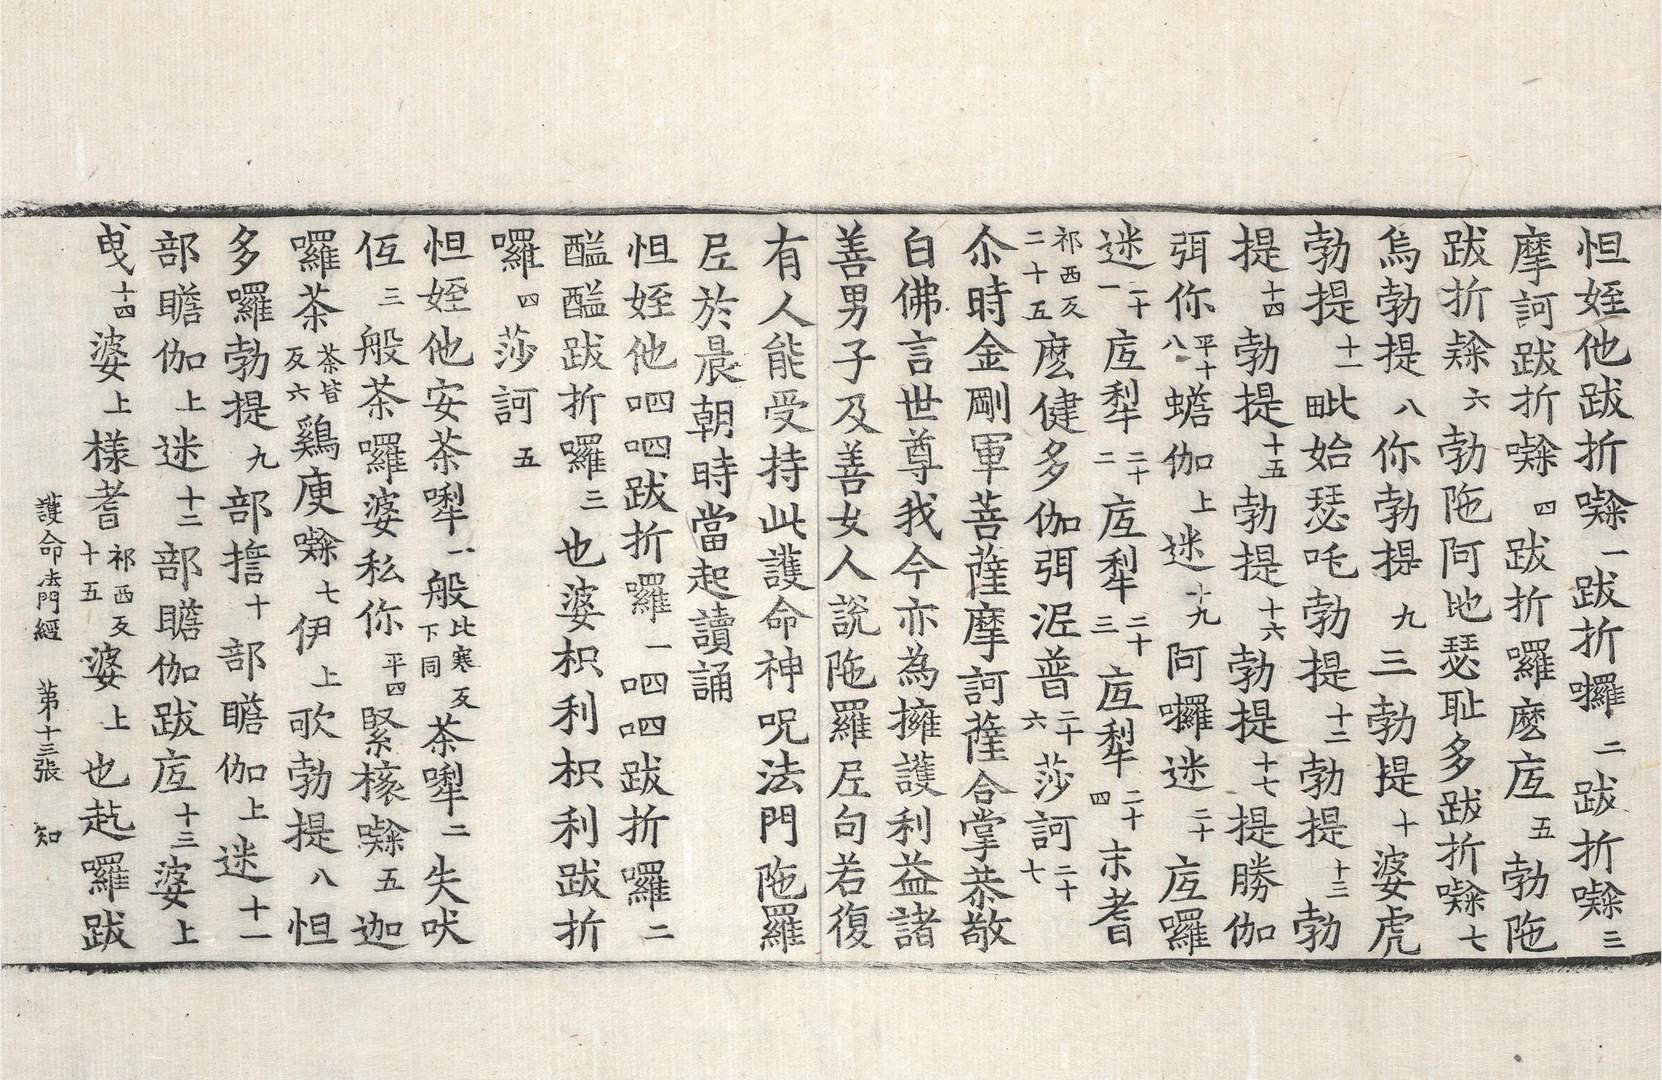 怛姪他跋折㘑一跋折囉二跋折㘑三
摩訶跋折㘑四跋折囉麽底五勃陁
跋折㘑六勃陁阿地瑟耻多跋折㘑七
烏勃提八你勃提九三勃提十婆虎
勃提十一毗始瑟吒勃提十二勃提十三勃
提十四勃提十五勃提十六勃提十七提勝伽
弭你平十八蟾伽上迷十九阿囉迷二十底囉
迷二十一底犁二十二底犁二十三底犁二十四末耆
祁西反二十五麽健多伽弭涅普二十六莎訶二十七
尒時金剛軍菩薩摩訶薩合掌恭敬
白佛言世尊我今亦為擁護利益諸
善男子及善女人說陁羅尼句若復
有人能受持此護命神呪法門陁羅
尼於晨朝時當起讀誦
怛姪他呬呬跋折囉一呬呬跋折囉二
醯醯跋折囉三也婆枳利枳利跋折
囉四莎訶五
怛姪他安茶㗚一般比寒反下同茶㗚二失吠
伍三般茶囉婆私你平四緊㮈㘑五迦
囉茶茶皆反六鷄庾㘑七伊上歌勃提八怛
多囉勃提九部㨾十部瞻伽上迷十一
部瞻伽上迷十二部瞻伽跋底十三婆上
曳十四婆上樣耆祁西反十五婆上也訖羅跋
護命法門經 第十三張 知